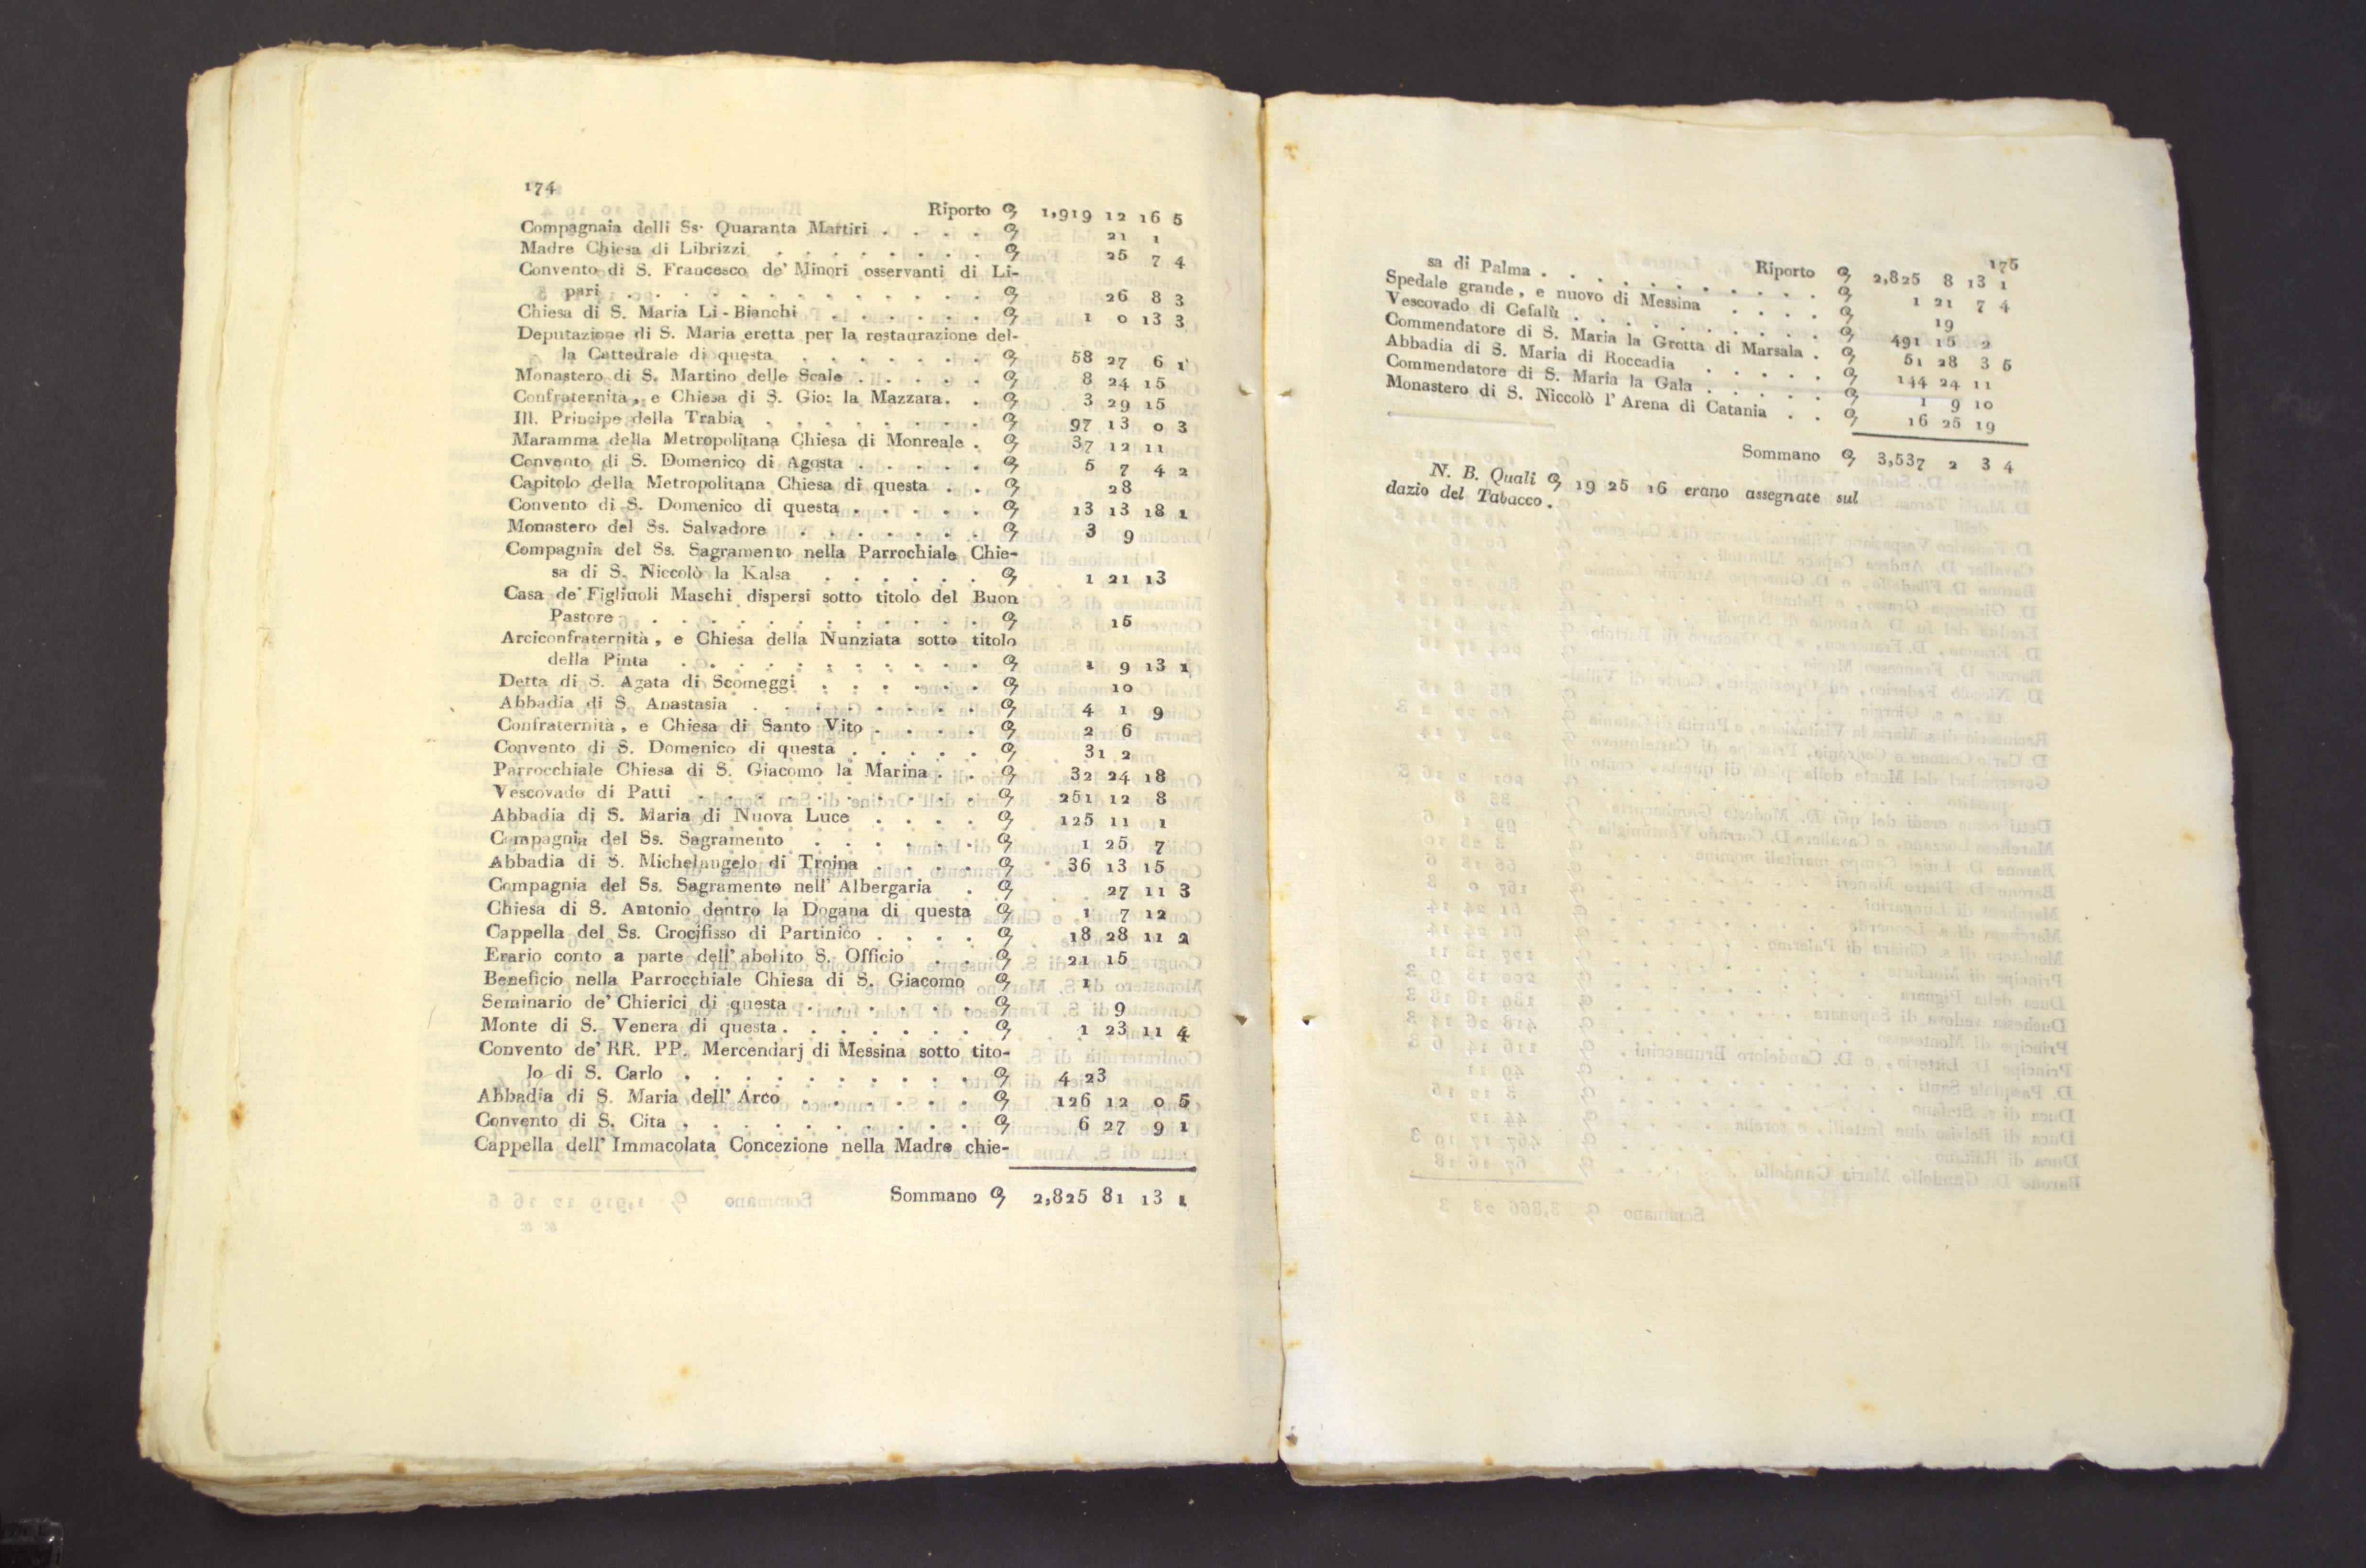 174
Riporto 1,919 12 16 5
Compagnaia delli Ss. Quaranta Martiri . . . . 21 1
Madre Chiesa di Librizzi . . . . . . . . 25 7 4
Convento di S. Francesco de' Minori osservanti di Li-
pari . . . . . . . . . . . . . 26 8 3
Chiesa di S. Maria Li-Bianchi . . . . . . 1 0 13 3
Deputazione di S. Maria eretta per la restaurazione del-
la Cattedrale di questa . . . . . . . 58 27 6 1
Monastero di S. Martino delle Scale . . . . . 8 24 15
Confraternità, e Chiesa di S. Gio: la Mazzara. . 3 29 15
Ill. Principe della Trabia . . . . . . . . 97 13 0 3
Maramma della Metropolitana Chiesa di Monreale . 37 12 11
Convento di S. Domenico di Agosta . . . . . 5 7 4 2
Capitolo della Metropolitana Chiesa di questa . . 28
Convento di S. Domenico di questa . . . . . 13 13 18 1
Monastero del Ss. Salvadore . . . . . . . 3 9
Compagnia del Ss. Sagramento nella Parrochiale Chie-
sa di S. Niccolò la Kalsa . . . . . . 1 21 13
Casa de' Figliuoli Maschi dispersi sotto titolo del Buon
Pastore . . . . . . . . . . . . 15
Arciconfraternità, e Chiesa della Nunziata sotto titolo
della Pinta . . . . . . . . . . . 1 9 13 1
Detta di S. Agata di Scomeggi . . . . . . 10
Abbadia di S. Anastasia . . . . . . . . 4 1 9
Confraternità, e Chiesa di Santo Vito . . . . 2 6
Convento di S. Domenico di questa . . . . . 31 2
Parrocchiale Chiesa di S. Giacomo la Marina . . 32 24 18
Vescovado di Patti . . . . . . . . . . 251 12 8
Abbadia di S. Maria di Nuova Luce . . . . 125 11 1
Compagnia del Ss. Sagramento . . . . . . 1 25 7
Abbadia di S. Michelangelo di Troina . . . . 36 13 15
Compagnia del Ss. Sagramento nell' Albergaria . 27 11 3
Chiesa di S. Antonio dentro la Dogana di questa 1 7 12
Cappella del Ss. Crocifisso di Partinico . . . . 18 28 11 2
Erario conto a parte dell' abolito S. Officio . . 21 15
Beneficio nella Parrocchiale Chiesa di S. Giacomo 1
Seminario de' Chierici di questa . . . . . . 9
Monte di S. Venera di questa . . . . . . . 1 23 11 4
Convento de' RR. PP. Mercendarj di Messina sotto tito-
lo di S. Carlo . . . . . . . . . . 4 23
Abbadia di S. Maria dell' Arco . . . . . . 126 12 0 5
Convento di S. Cita . . . . . . . . . . 6 27 9 1
Cappella dell' Immacolata Concezione nella Madre chie-
Sommano 2,825 81 13 1
175
Riporto 2,825 8 13 1
sa di Palma . . . . . . . . . . . 1 21 7 4
Spedale grande, e nuovo di Messina . . . . 19
Vescovado di Cefalù . . . . . . . . . . 491 15 2
Commendatore di S. Maria la Grotta di Marsala . 51 28 3 5
Abbadia di S. Maria di Roccadia . . . . . 144 24 11
Commendatore di S. Maria la Gala . . . . . 1 9 10
Monastero di S. Niccolò l' Arena di Catania . . 16 25 19
Sommano 3,537 2 3 4
N. B. Quali 19 25 16 erano assegnate sul
dazio del Tabacco .